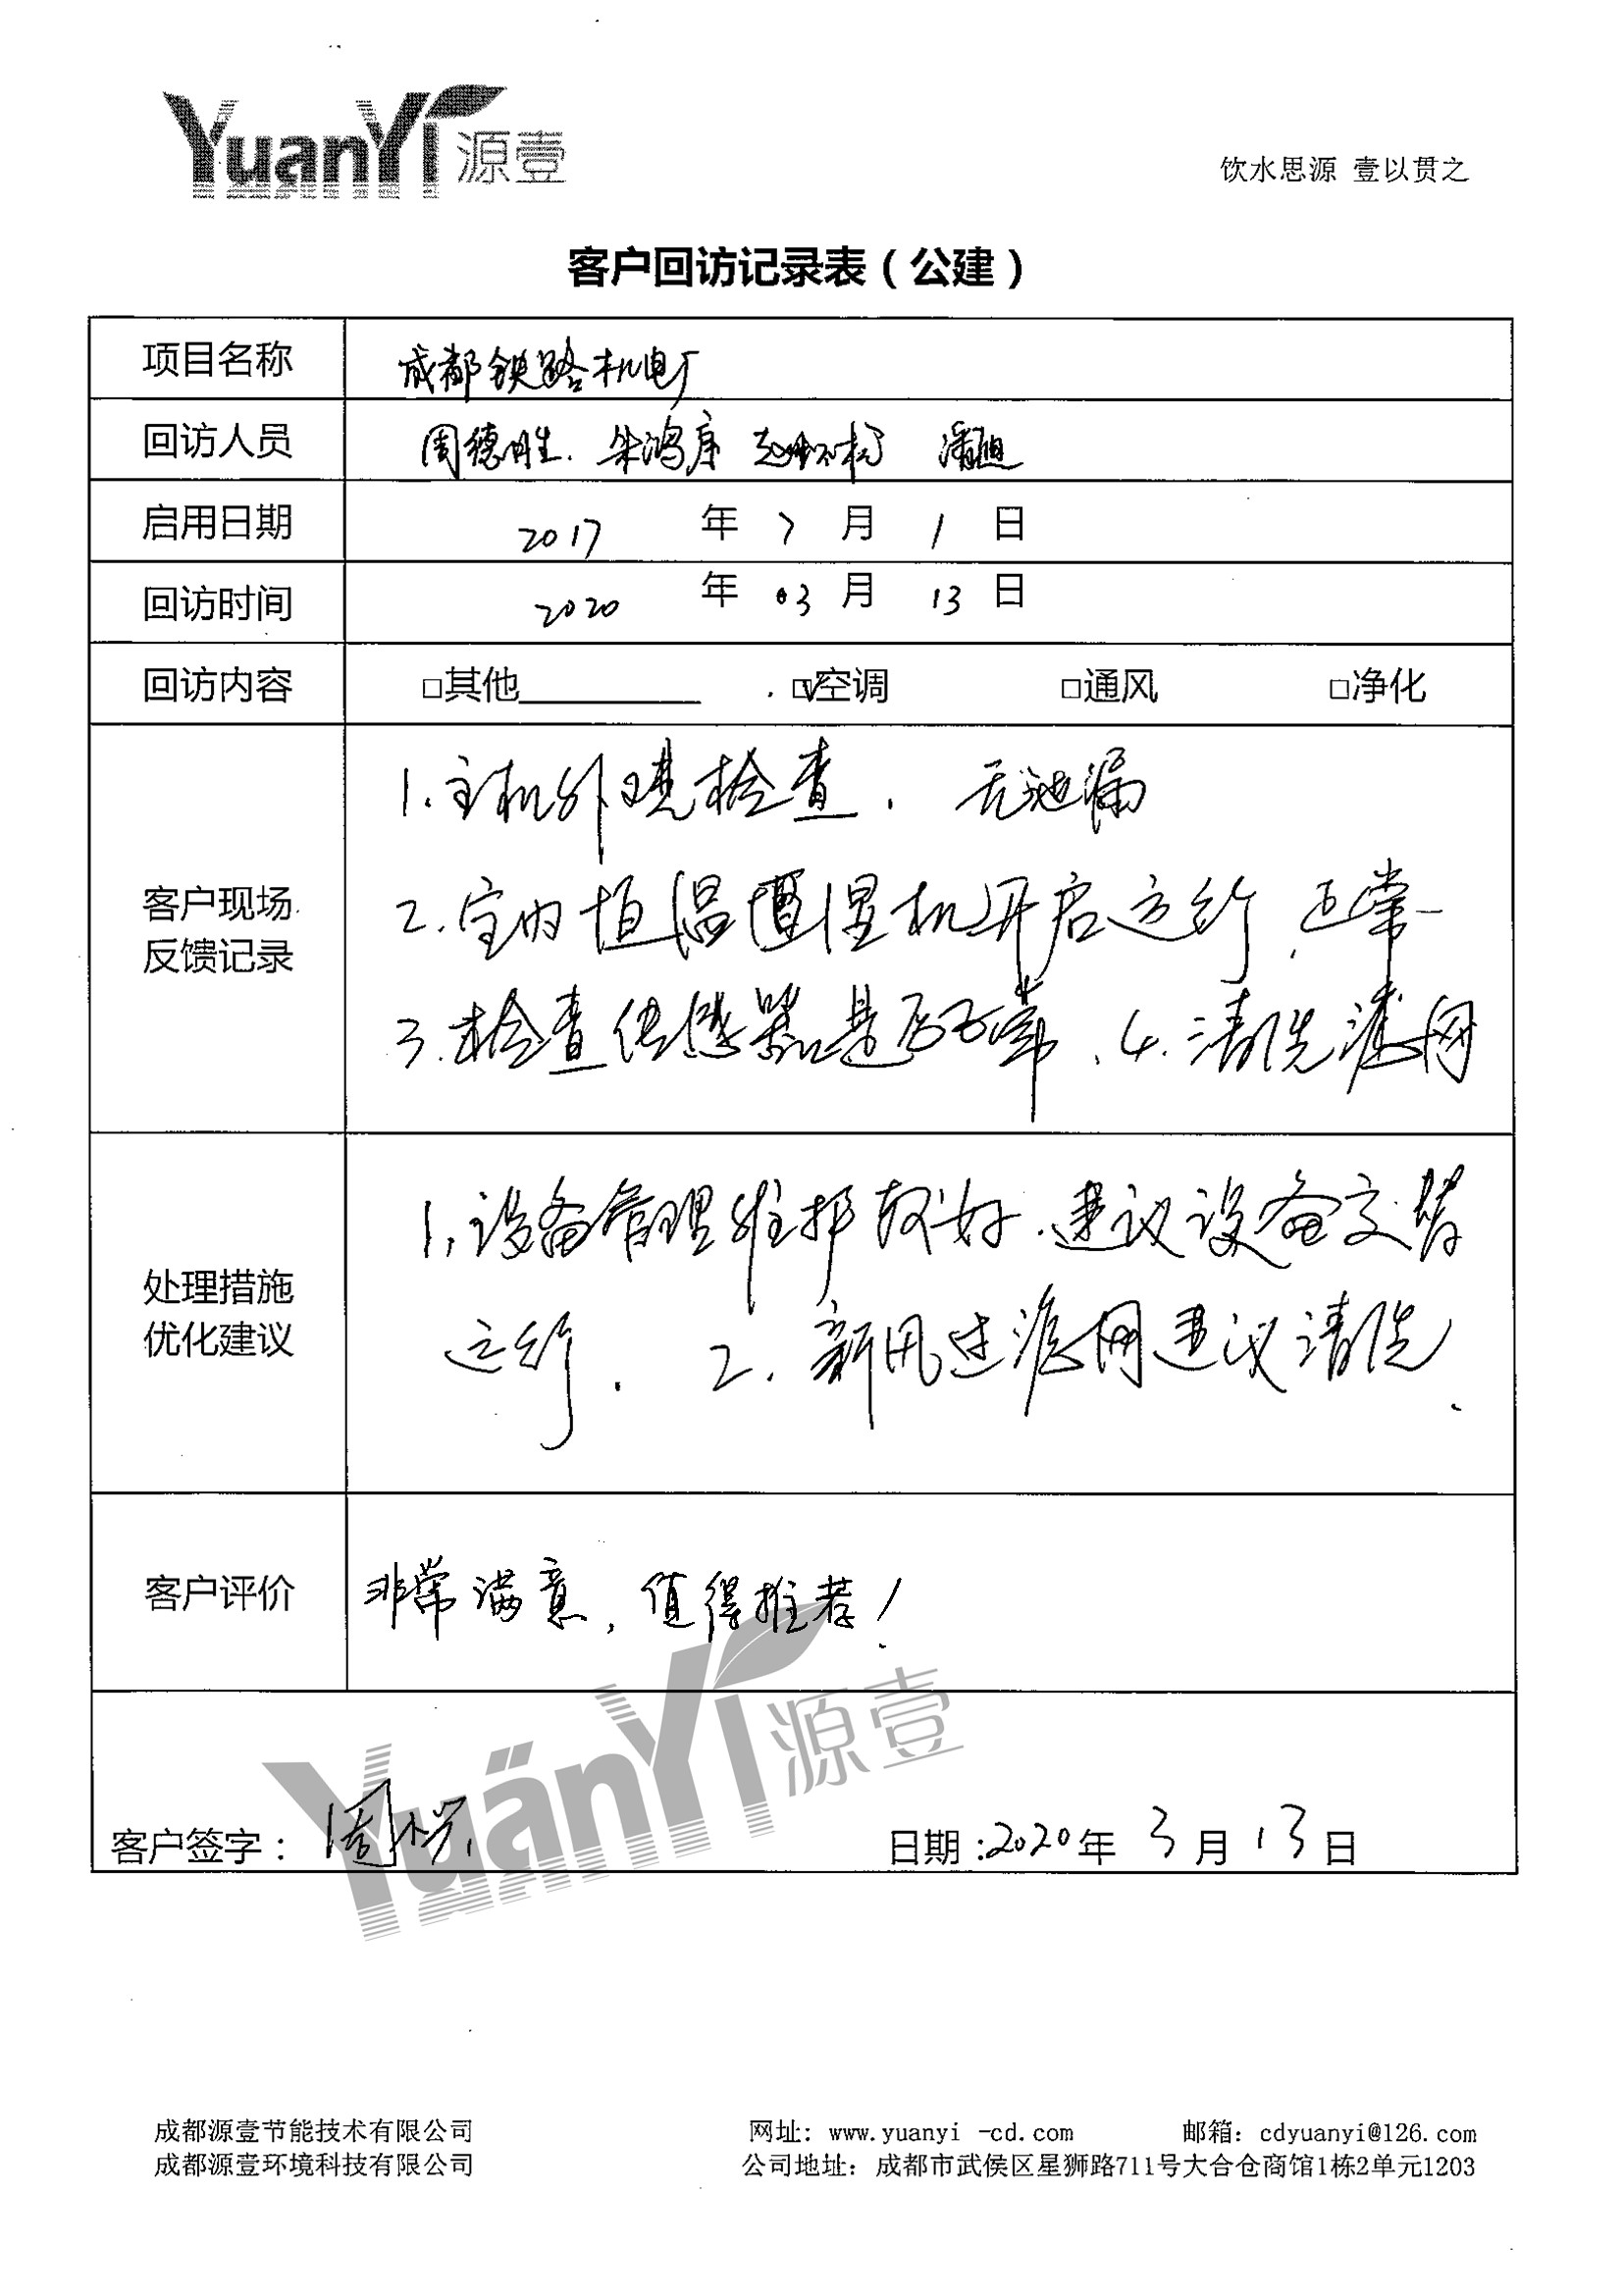 YuanYi 源壹
饮水思源 壹以贯之
客户回访记录表（公建）
项目名称 成都铁路机电厂
回访人员 周德胜. 朱鸿序 潘旭
启用日期 2017 年 7 月 1 日
回访时间 2020 年 03 月 13 日
回访内容 □其他 ☑空调 □通风 □净化
客户现场
反馈记录
1.主机外观检查. 无泄漏
2.室内恒温恒湿机开启运行.正常
3.检查传感器是否正常.4.清洗滤网
处理措施
优化建议
1.设备管理维护较好.建议设备交替
运行. 2.新风过滤网建议清洗.
客户评价 非常满意,值得推荐!
YuanYi 源壹
客户签字： 周 日期:2020年 3 月 13 日
成都源壹节能技术有限公司 网址: www.yuanyi -cd.com 邮箱: cdyuanyi@126.com
成都源壹环境科技有限公司 公司地址: 成都市武侯区星狮路711号大合仓商馆1栋2单元1203